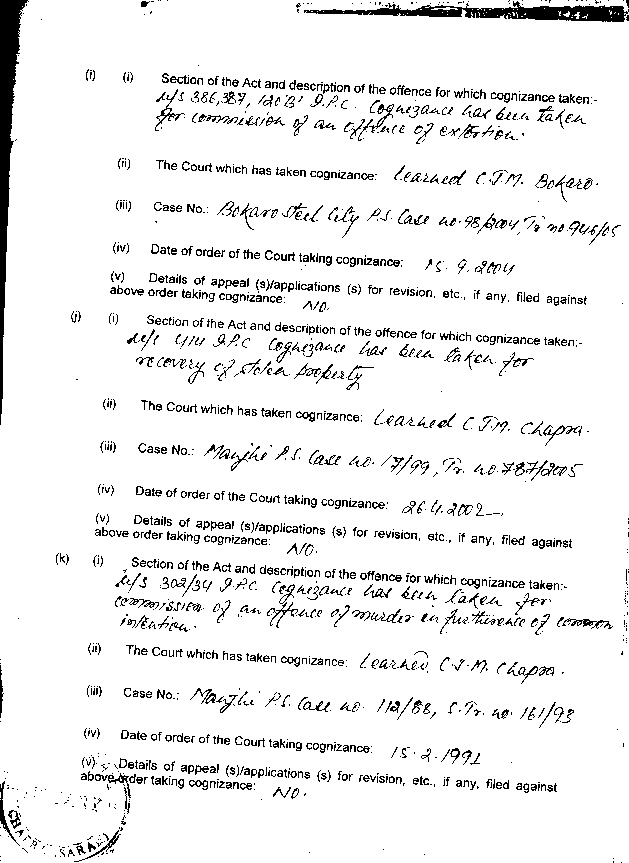 (i) (i) Section of the Act and description of the offence for which cognizance taken:-
u/s 386,387, 120'B' I.P.C. Cognizance has been taken
for commission of an offence of extortion.
(ii) The Court which has taken cognizance: Learned C.J.M. Bokaro.
(iii) Case No.: Bokaro Steel City P.S. Case no. 98/2004, Tr no 946/05
(iv) Date of order of the Court taking cognizance: 15.9.2004
(v) Details of appeal (s)/applications (s) for revision, etc., if any, filed against
above order taking cognizance: NO.
(j) (i) Section of the Act and description of the offence for which cognizance taken:-
u/s 414 I.P.C Cognizance has been taken for
recovery of stolen property
(ii) The Court which has taken cognizance: Learned C.J.M. Chapra.
(iii) Case No.: Manjhi P.S. Case no. 17/99, Tr. no. 787/2005
(iv) Date of order of the Court taking cognizance: 26.4.2002
(v) Details of appeal (s)/applications (s) for revision, etc., if any, filed against
above order taking cognizance: NO.
(k) (i) Section of the Act and description of the offence for which cognizance taken:-
u/s 302/34 I.P.C. Cognizance has been taken for
commission of an offence of murder in furtherence of common
intention.
(ii) The Court which has taken cognizance: Learned C.J.M. Chapra.
(iii) Case No.: Manjhi P.S. Case no. 112/88, S.Tr. no. 161/93
(iv) Date of order of the Court taking cognizance: 15.2.1991
(v) Details of appeal (s)/applications (s) for revision, etc., if any, filed against
above order taking cognizance: NO.